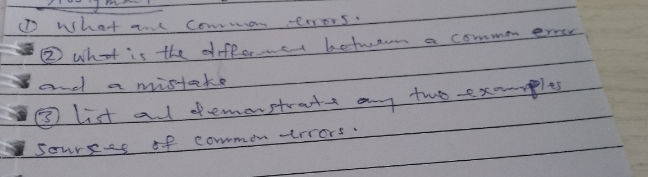 Assignment
① What are common errors.
② what is the different between a common error
and a mistake
③ list and demonstrate any two examples
sources of common errors.